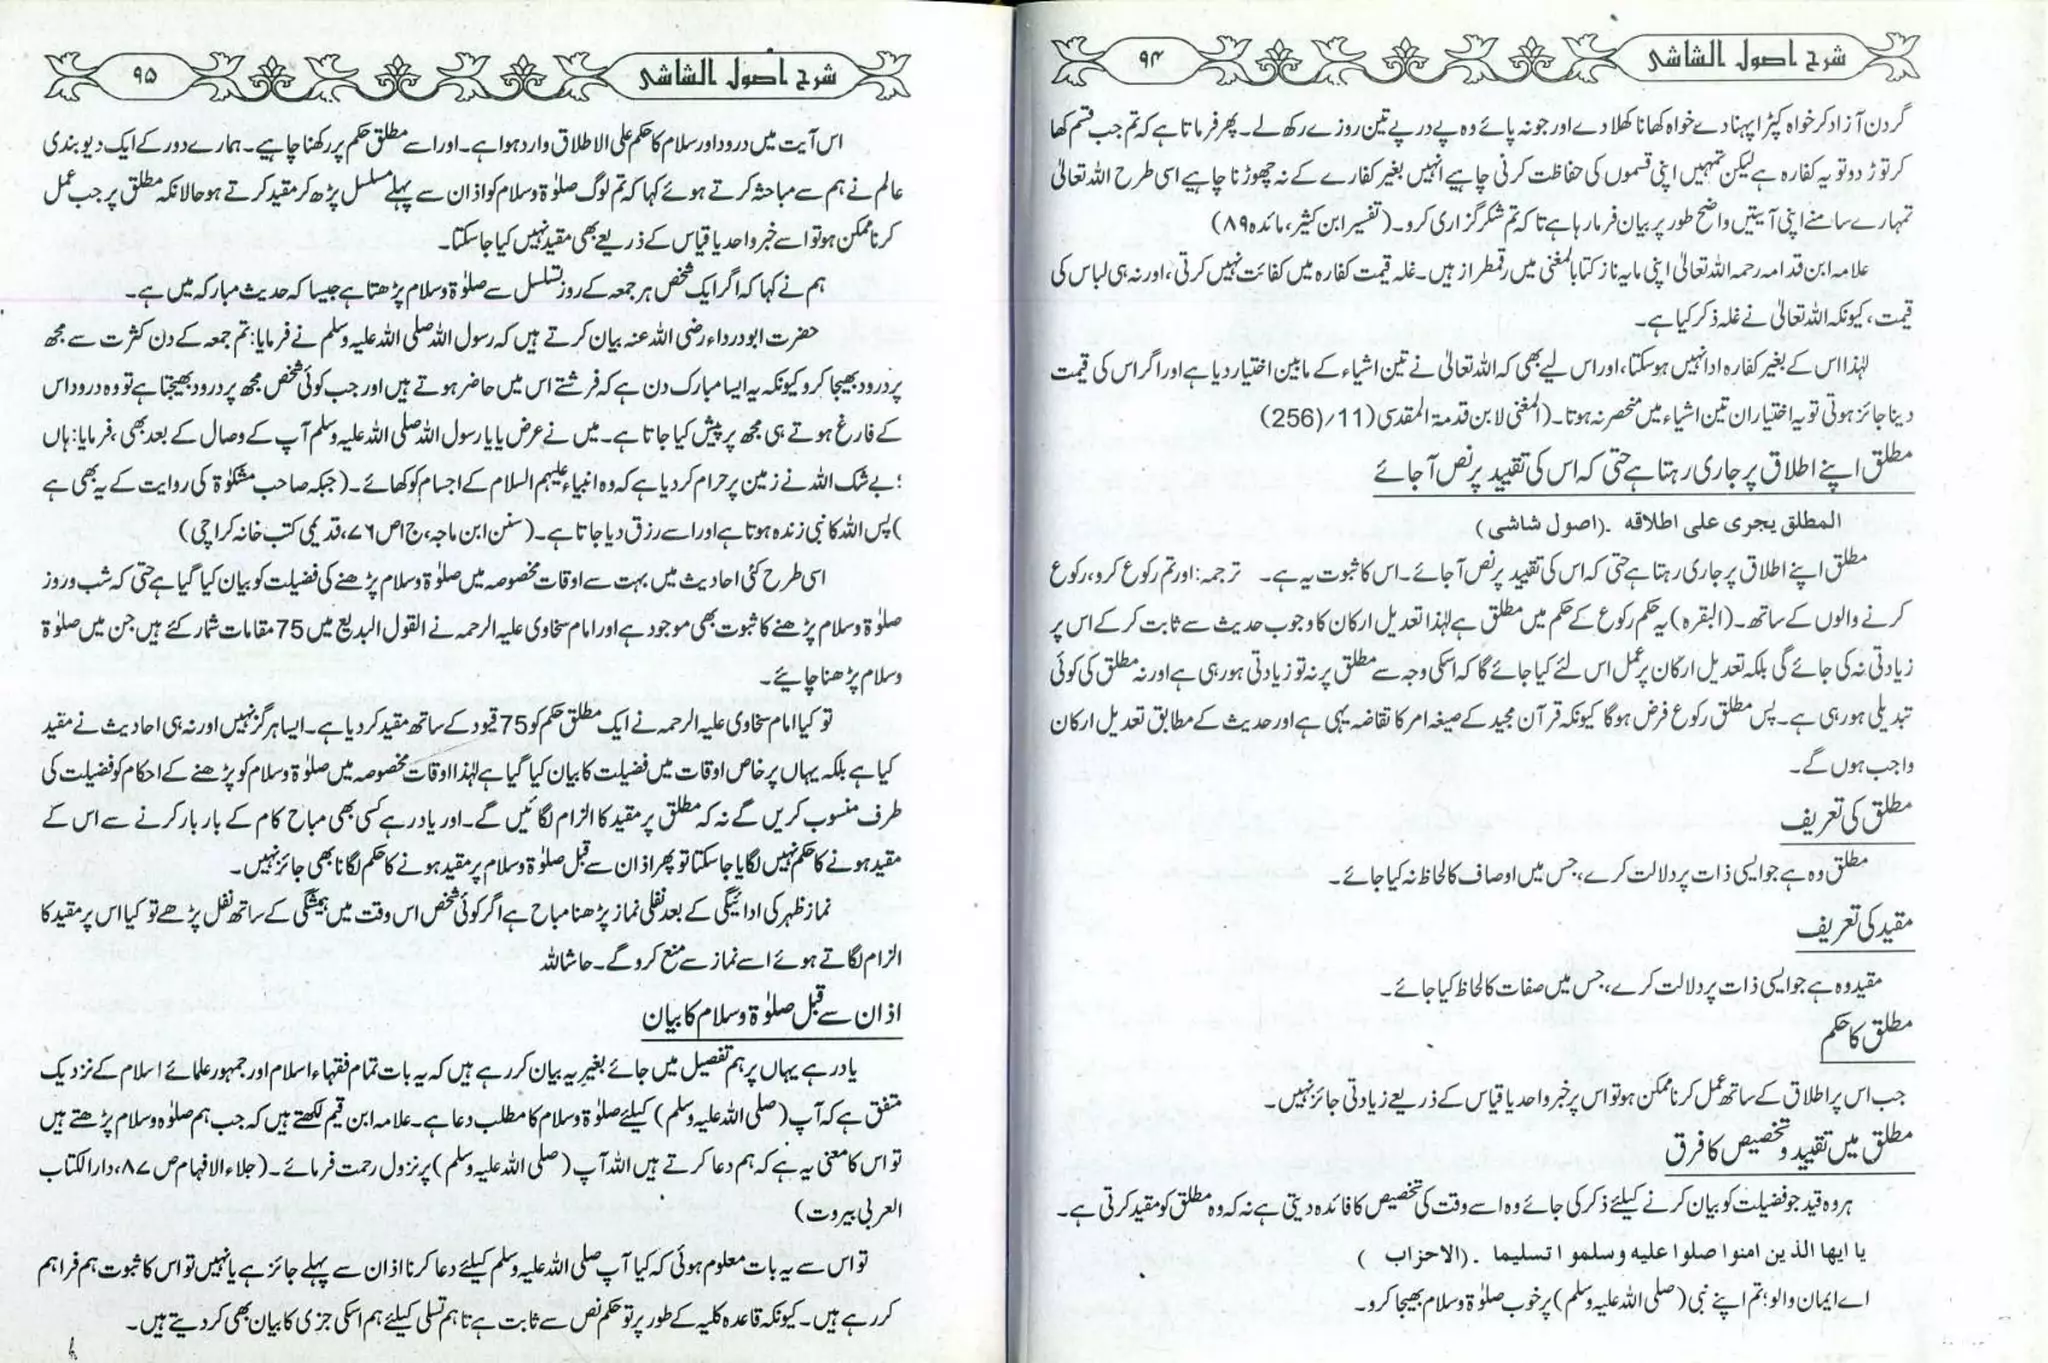 شرح اصول الشاشی
۹۴
گردن آزاد کر خواہ کپڑا پہنا دے خواہ کھانا کھلا دے اور جو نہ پائے وہ پے در پے تین روزے رکھ لے۔ پھر فرماتا ہے کہ تم جب قسم کھا
کر توڑ دو تو یہ کفارہ ہے لیکن تمہیں اپنی قسموں کی حفاظت کرنی چاہیے انہیں بغیر کفارے کے نہ چھوڑنا چاہیے اسی طرح اللہ تعالیٰ
تمہارے سامنے اپنی آیتیں واضح طور پر بیان فرما رہا ہے تا کہ تم شکر گزاری کرو۔ (تفسیر ابن کثیر، مائدہ ۸۹)
علامہ ابن قدامہ رحمہ اللہ تعالیٰ اپنی مایہ ناز کتاب المغنی میں رقمطراز ہیں۔ غلہ قیمت کفارہ میں کفائت نہیں کرتی، اور نہ ہی لباس کی
قیمت، کیونکہ اللہ تعالیٰ نے غلہ ذکر کیا ہے۔
لہٰذا اس کے بغیر کفارہ ادا نہیں ہو سکتا، اور اس لیے بھی کہ اللہ تعالیٰ نے تین اشیاء کے مابین اختیار دیا ہے اور اگر اس کی قیمت
دینا جائز ہوتی تو یہ اختیار ان تین اشیاء میں منحصر نہ ہوتا۔ (المغنی لابن قدمۃ المقدسی (11/(256)
مطلق اپنے اطلاق پر جاری رہتا ہے حتی کہ اس کی تقیید پر نص آ جائے
المطلق یجری علی اطلاقه .(اصول شاشی)
مطلق اپنے اطلاق پر جاری رہتا ہے حتی کہ اس کی تقیید پر نص آ جائے۔ اس کا ثبوت یہ ہے۔ ترجمہ: اور تم رکوع کرو، رکوع
کرنے والوں کے ساتھ۔ (البقرہ) یہ حکم رکوع کے حکم میں مطلق ہے لہٰذا تعدیل ارکان کا وجوب حدیث سے ثابت کر کے اس پر
زیادتی نہ کی جائے گی بلکہ تعدیل ارکان پر عمل اس لئے کیا جائے گا کہ اسکی وجہ سے مطلق پر نہ تو زیادتی ہو رہی ہے اور نہ مطلق کی کوئی
تبدیلی ہو رہی ہے۔ پس مطلق رکوع فرض ہوگا کیونکہ قرآن مجید کے صیغہ امر کا تقاضہ یہی ہے اور حدیث کے مطابق تعدیل ارکان
واجب ہوں گے۔
مطلق کی تعریف
مطلق وہ ہے جو ایسی ذات پر دلالت کرے، جس میں اوصاف کا لحاظ نہ کیا جائے۔
مقید کی تعریف
مقید وہ ہے جو ایسی ذات پر دلالت کرے، جس میں صفات کا لحاظ کیا جائے۔
مطلق کا حکم
جب اس پر اطلاق کے ساتھ عمل کرنا ممکن ہو تو اس پر خبر واحد یا قیاس کے ذریعے زیادتی جائز نہیں۔
مطلق میں تقیید و تخصیص کا فرق
ہر وہ قید جو فضیلت کو بیان کرنے کیلئے ذکر کی جائے وہ اسے وقت کی تخصیص کا فائدہ دیتی ہے نہ کہ وہ مطلق کو مقید کرتی ہے۔
یا ایها الذین امنوا صلوا علیه وسلموا تسلیما .(الاحزاب )
اے ایمان والو! تم اپنے نبی (صلی اللہ علیہ وسلم) پر خوب صلوٰۃ وسلام بھیجا کرو۔
شرح اصول الشاشی
۹۵
اس آیت میں درود اور سلام کا حکم علی الاطلاق وارد ہوا ہے۔ اور اسے مطلق حکم پر رکھنا چاہیے۔ ہمارے دور کے ایک دیوبندی
عالم نے ہم سے مباحثہ کرتے ہوئے کہا کہ تم لوگ صلوٰۃ وسلام کو اذان سے پہلے مسلسل پڑھ کر مقید کرتے ہو حالانکہ مطلق پر جب عمل
کرنا ممکن ہو تو اسے خبر واحد یا قیاس کے ذریعے بھی مقید نہیں کیا جا سکتا۔
ہم نے کہا کہ اگر ایک شخص ہر جمعہ کے روز تسلسل سے صلوٰۃ وسلام پڑھتا ہے جیسا کہ حدیث مبارکہ میں ہے۔
حضرت ابودرداء رضی اللہ عنہ بیان کرتے ہیں کہ رسول اللہ صلی اللہ علیہ وسلم نے فرمایا: تم جمعہ کے دن کثرت سے مجھ
پر درود بھیجا کرو کیونکہ یہ ایسا مبارک دن ہے کہ فرشتے اس میں حاضر ہوتے ہیں اور جب کوئی شخص مجھ پر درود بھیجتا ہے تو وہ درود اس
کے فارغ ہوتے ہی مجھ پر پیش کیا جاتا ہے۔ میں نے عرض یا یارسول اللہ صلی اللہ علیہ وسلم آپ کے وصال کے بعد بھی، فرمایا: ہاں
؛ بے شک اللہ نے زمین پر حرام کر دیا ہے کہ وہ انبیاء علیہم السلام کے اجسام کو کھائے۔ (جبکہ صاحب مشکوٰۃ کی روایت کے یہ بھی ہے
) پس اللہ کا نبی زندہ ہوتا ہے اور اسے رزق دیا جاتا ہے۔ (سنن ابن ماجہ، ج ا ص ۷۶، قدیمی کتب خانہ کراچی)
اسی طرح کئی احادیث میں بہت سے اوقات مخصوصہ میں صلوٰۃ وسلام پڑھنے کی فضیلت کو بیان کیا گیا ہے حتی کہ شب و روز
صلوٰۃ وسلام پڑھنے کا ثبوت بھی موجود ہے اور امام سخاوی علیہ الرحمہ نے القول البدیع میں 75 مقامات شمار کئے ہیں جن میں صلوٰۃ
وسلام پڑھنا چاہیے۔
تو کیا امام سخاوی علیہ الرحمہ نے ایک مطلق حکم کو 75 قیود کے ساتھ مقید کر دیا ہے۔ ایسا ہرگز نہیں اور نہ ہی احادیث نے مقید
کیا ہے بلکہ یہاں پر خاص اوقات میں فضیلت کا بیان کیا گیا ہے لہٰذا اوقات مخصوصہ میں صلوٰۃ وسلام کو پڑھنے کے احکام کو فضیلت کی
طرف منسوب کریں گے نہ کہ مطلق پر مقید کا الزام لگائیں گے۔ اور یاد رہے کسی بھی مباح کام کے بار بار کرنے سے اس کے
مقید ہونے کا حکم نہیں لگایا جا سکتا تو پھر اذان سے قبل صلوٰۃ وسلام پر مقید ہونے کا حکم لگانا بھی جائز نہیں۔
نماز ظہر کی ادائیگی کے بعد نفلی نماز پڑھنا مباح ہے اگر کوئی شخص اس وقت میں ہمیشگی کے ساتھ نفل پڑھے تو کیا اس پر مقید کا
الزام لگاتے ہوئے اسے نماز سے منع کرو گے۔ حاشا للہ
اذان سے قبل صلوٰۃ وسلام کا بیان
یاد رہے یہاں پر ہم تفصیل میں جائے بغیر یہ بیان کر رہے ہیں کہ یہ بات تمام فقہاء اسلام اور جمہور علمائے اسلام کے نزدیک
متفق ہے کہ آپ (صلی اللہ علیہ وسلم) کیلئے صلوٰۃ وسلام کا مطلب دعا ہے۔ علامہ ابن قیم لکھتے ہیں کہ جب ہم صلوٰۃ وسلام پڑھتے ہیں
تو اس کا معنی یہ ہے کہ ہم دعا کرتے ہیں اللہ آپ (صلی اللہ علیہ وسلم) پر نزول رحمت فرمائے۔ (جلاء الافہام ص ۸۷، دارالکتاب
العربی بیروت)
تو اس سے یہ بات معلوم ہوئی کہ کیا آپ صلی اللہ علیہ وسلم کیلئے دعا کرنا اذان سے پہلے جائز ہے یا نہیں تو اس کا ثبوت ہم فراہم
کر رہے ہیں۔ کیونکہ قاعدہ کلیہ کے طور پر تو حکم نص سے ثابت ہے تاہم تسلی کیلئے ہم اسکی جزی کا بیان بھی کر دیتے ہیں۔